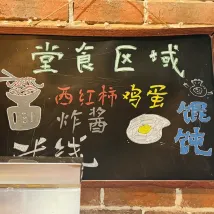 堂食区域
西红柿鸡蛋
炸酱
米线
馄饨